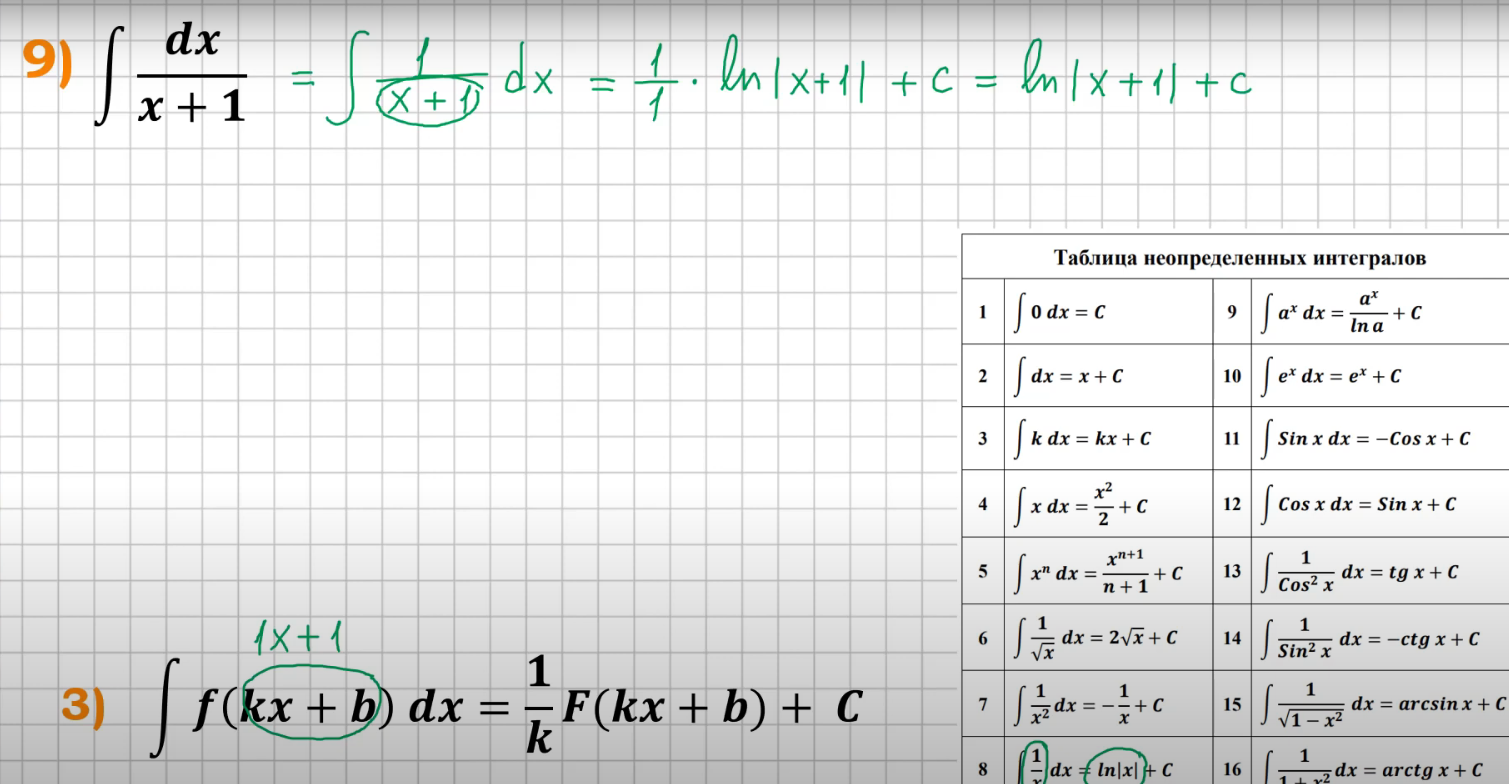 9) ∫ dx/(x + 1) = ∫ 1/(x + 1) dx = 1/1 · ln|x+1| + c = ln|x+1| + c
Таблица неопределенных интегралов
1 ∫ 0 dx = C 9 ∫ aˣ dx = aˣ/ln a + C
2 ∫ dx = x + C 10 ∫ eˣ dx = eˣ + C
3 ∫ k dx = kx + C 11 ∫ Sin x dx = −Cos x + C
4 ∫ x dx = x²/2 + C 12 ∫ Cos x dx = Sin x + C
5 ∫ xⁿ dx = xⁿ⁺¹/(n + 1) + C 13 ∫ 1/Cos² x dx = tg x + C
6 ∫ 1/√x dx = 2√x + C 14 ∫ 1/Sin² x dx = −ctg x + C
7 ∫ 1/x² dx = −1/x + C 15 ∫ 1/√(1 − x²) dx = arcsin x + C
8 ∫ 1/x dx = ln|x| + C 16 ∫ 1/(1 + x²) dx = arctg x + C
1x+1
3) ∫ f(kx + b) dx = 1/k F(kx + b) + C